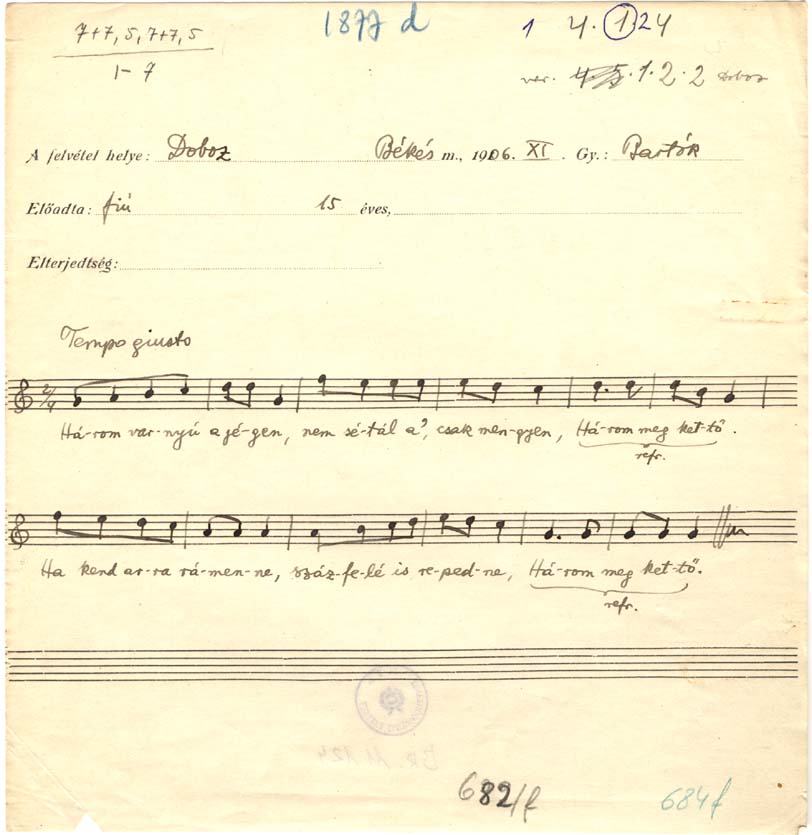 7+7, 5, 7+7, 5
1-7
1877 d
1 4. 1 24
var. 1. 2. 2 Doboz
A felvétel helye: Doboz Békés m., 1906. XI. Gy.: Bartók
Előadta: fiú 15 éves,
Elterjedtség:
Tempo giusto
2/4
Há-rom var-nyú a jé-gen, nem sé-tál a', csak men-gyen, Há-rom meg ket-tő.
refr.
Ha kend ar-ra rá-men-ne, száz-fe-lé is re-ped-ne, Há-rom meg ket-tő.
refr.
682/f
684f